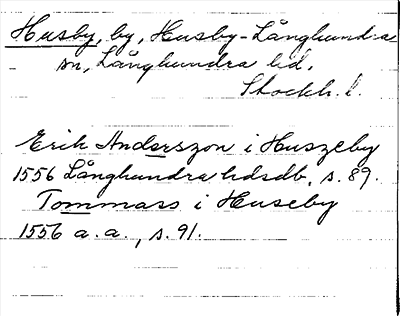 Husby, by, Husby-Långhundra
sn, Långhundra hd,
Stockh. l.
Erik Anderszon i Huszeby
1556 Långhundra hdsdb, s. 89.
Tommass i Huseby
1556 a. a., s. 91.